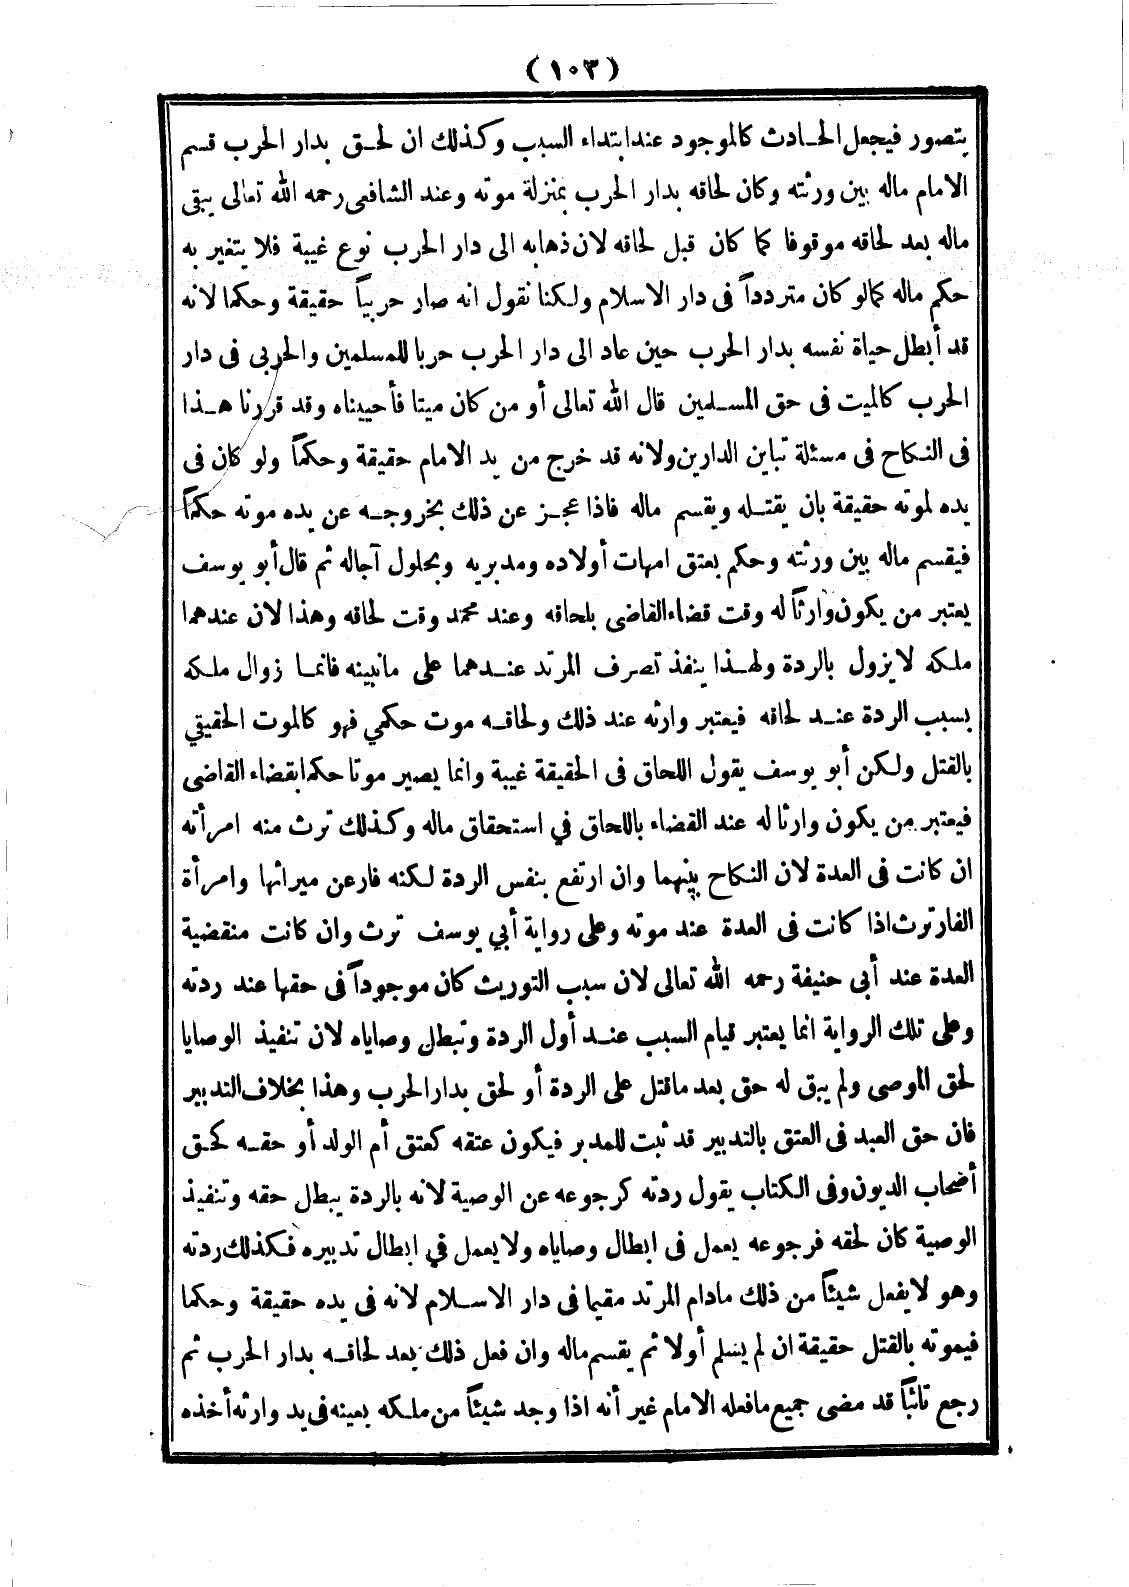 (١٠٣)
يتصور فيجعل الحادث كالموجود عند ابتداء السبب وكذلك ان لحق بدار الحرب قسم
الامام ماله بين ورثته وكان لحاقه بدار الحرب بمنزلة موته وعند الشافعى رحمه الله تعالى يبقى
ماله بعد لحاقه موقوفا كما كان قبل لحاقه لان ذهابه الى دار الحرب نوع غيبة فلا يتغير به
حكم ماله كمالو كان مترددا فى دار الاسلام ولكنا نقول انه صار حربياً حقيقة وحكما لانه
قد أبطل حياة نفسه بدار الحرب حين عاد الى دار الحرب حربا للمسلمين والحربى فى دار
الحرب كالميت فى حق المسلمين قال الله تعالى أو من كان ميتا فأحييناه وقد قررنا هذا
فى النكاح فى مسئلة تباين الدارين ولانه قد خرج من يد الامام حقيقة وحكماً ولو كان فى
يده لموته حقيقة بان يقتله ويقسم ماله فاذا عجز عن ذلك بخروجه عن يده موته حكماً
فيقسم ماله بين ورثته وحكم بعتق امهات أولاده ومدبريه وبحلول آجاله ثم قال أبو يوسف
يعتبر من يكون وارثاً له وقت قضاء القاضى بلحاقه وعند محمد وقت لحاقه وهذا لان عندهما
ملكه لا يزول بالردة ولهذا ينفذ تصرف المرتد عندهما على مانبينه فانما زوال ملكه
بسبب الردة عند لحاقه فيعتبر وارثه عند ذلك ولحاقه موت حكمي فهو كالموت الحقيقي
بالقتل ولكن أبو يوسف يقول اللحاق فى الحقيقة غيبة وانما يصير موتا حكما بقضاء القاضى
فيعتبر من يكون وارثا له عند القضاء باللحاق في استحقاق ماله وكذلك ترث منه امرأته
ان كانت فى العدة لان النكاح بينهما وان ارتفع بنفس الردة لكنه فار عن ميراثها وامرأة
الفار ترث اذا كانت فى العدة عند موته وعلى رواية أبي يوسف ترث وان كانت منقضية
العدة عند أبي حنيفة رحمه الله تعالى لان سبب التوريث كان موجوداً فى حقها عند ردته
وعلى تلك الرواية انما يعتبر قيام السبب عند أول الردة وتبطل وصاياه لان تنفيذ الوصايا
لحق الموصى ولم يبق له حق بعد ماقتل على الردة أو لحق بدار الحرب وهذا بخلاف التدبير
فان حق العبد فى العتق بالتدبير قد ثبت للمدبر فيكون عتقه كعتق أم الولد أو حقه كحق
أصحاب الديون وفى الكتاب يقول ردته كرجوعه عن الوصية لانه بالردة يبطل حقه وتنفيذ
الوصية كان لحقه فرجوعه يعمل فى ابطال وصاياه ولا يعمل في ابطال تدبيره فكذلك ردته
وهو لايفعل شيئاً من ذلك مادام المرتد مقيما فى دار الاسلام لانه فى يده حقيقة وحكما
فيموته بالقتل حقيقة ان لم يسلم أولا ثم يقسم ماله وان فعل ذلك بعد لحاقه بدار الحرب ثم
رجع تائباً قد مضى جميع مافعله الامام غير أنه اذا وجد شيئاً من ملكه بعينه فى يد وارثه أخذه